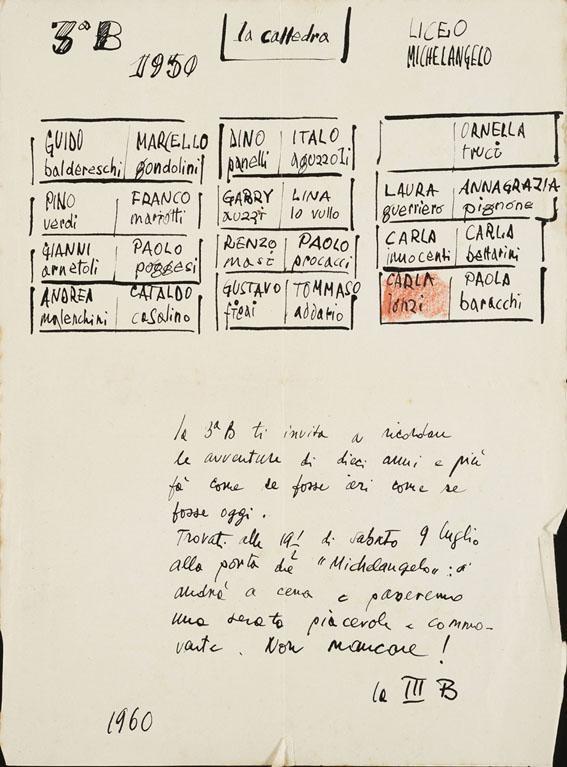 3ªB
1950
la cattedra
LICEO
MICHELANGELO
GUIDO MARCELLO
baldereschi gondolini
PINO FRANCO
verdi mariotti
GIANNI PAOLO
arnetoli poggesi
ANDREA CATALDO
malenchini casalino
DINO ITALO
panelli aguzzoli
GABRY LINA
auzzi lo vullo
RENZO PAOLO
masi procacci
GUSTAVO TOMMASO
ficai addario
ORNELLA
truci
LAURA ANNAGRAZIA
guerriero pignone
CARLA CARLA
innocenti bettarini
CARLA PAOLA
lonzi baracchi
la 3ªB ti invita a ricordare
le avventure di dieci anni e più
fà come se fosse ieri come se
fosse oggi.
Trovati alle 19 di sabato 9 luglio
alla porta del "Michelangelo": si
andrà a cena e passeremo
una serata piacevole e commo-
vente. Non mancare!
la III B
1960